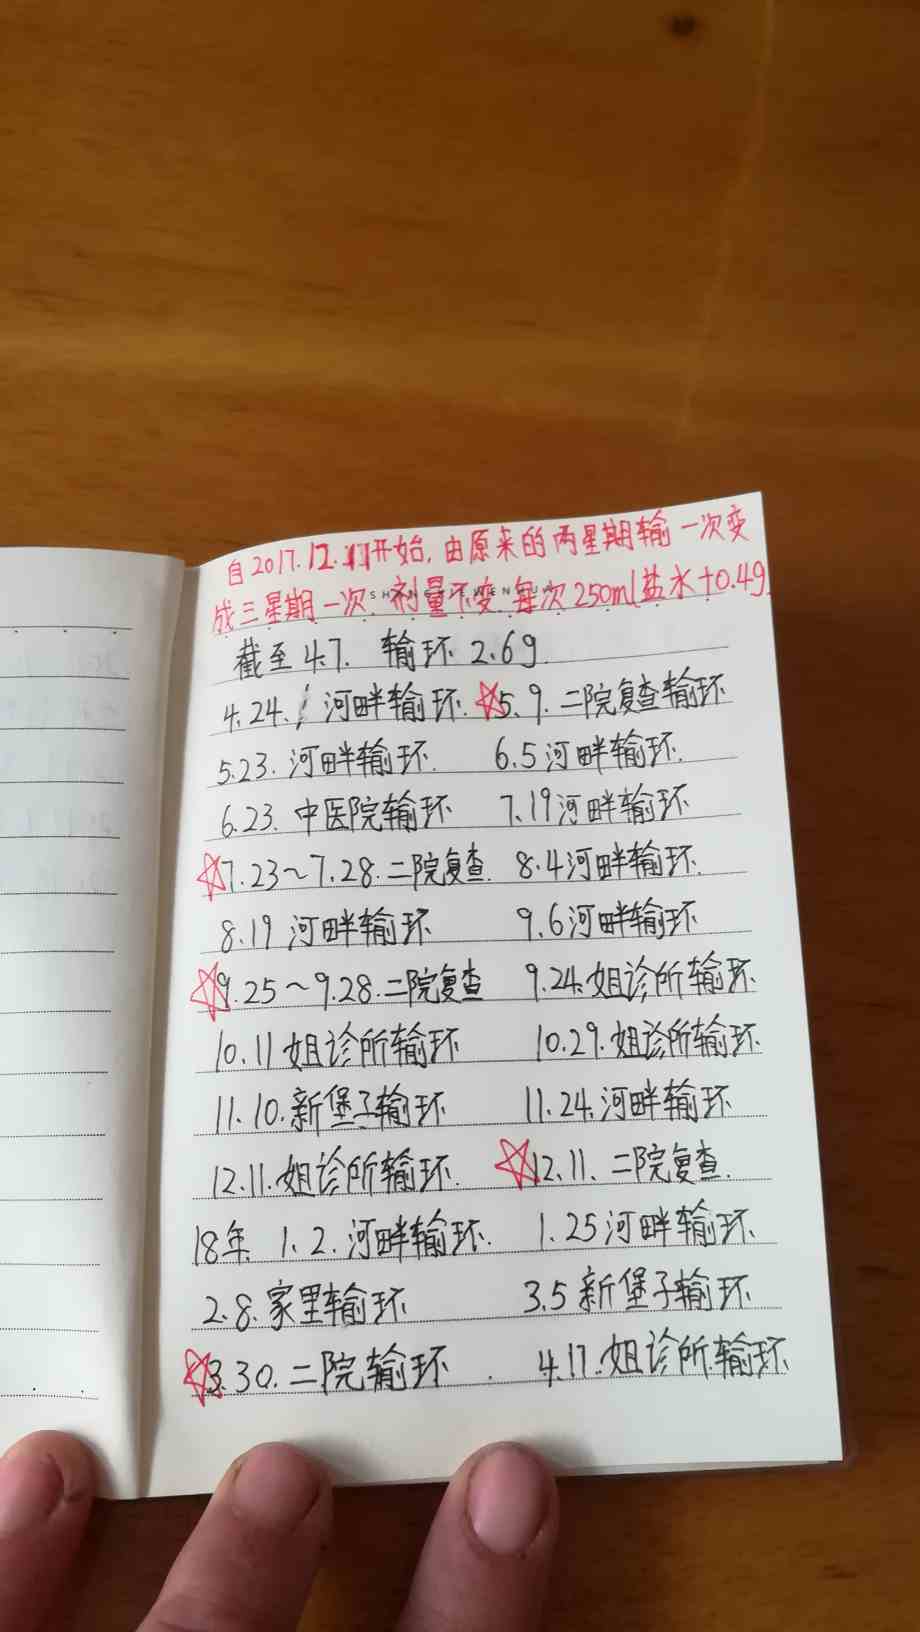 自2017.12.11开始,由原来的两星期输一次变
成三星期一次.剂量不变.每次250ml盐水+0.4g.
截至4.7. 输环2.6g.
4.24. 河畔输环. ☆5.9.二院复查输环
5.23.河畔输环. 6.5河畔输环.
6.23.中医院输环 7.19河畔输环
☆7.23~7.28.二院复查. 8.4河畔输环.
8.19河畔输环 9.6河畔输环
☆9.25~9.28.二院复查 9.24.姐诊所输环
10.11姐诊所输环 10.29.姐诊所输环.
11.10.新堡子输环 11.24.河畔输环
12.11.姐诊所输环. ☆12.11.二院复查.
18年 1.2.河畔输环. 1.25河畔输环
2.8.家里输环 3.5新堡子输环
☆3.30.二院输环 4.17.姐诊所.输环.